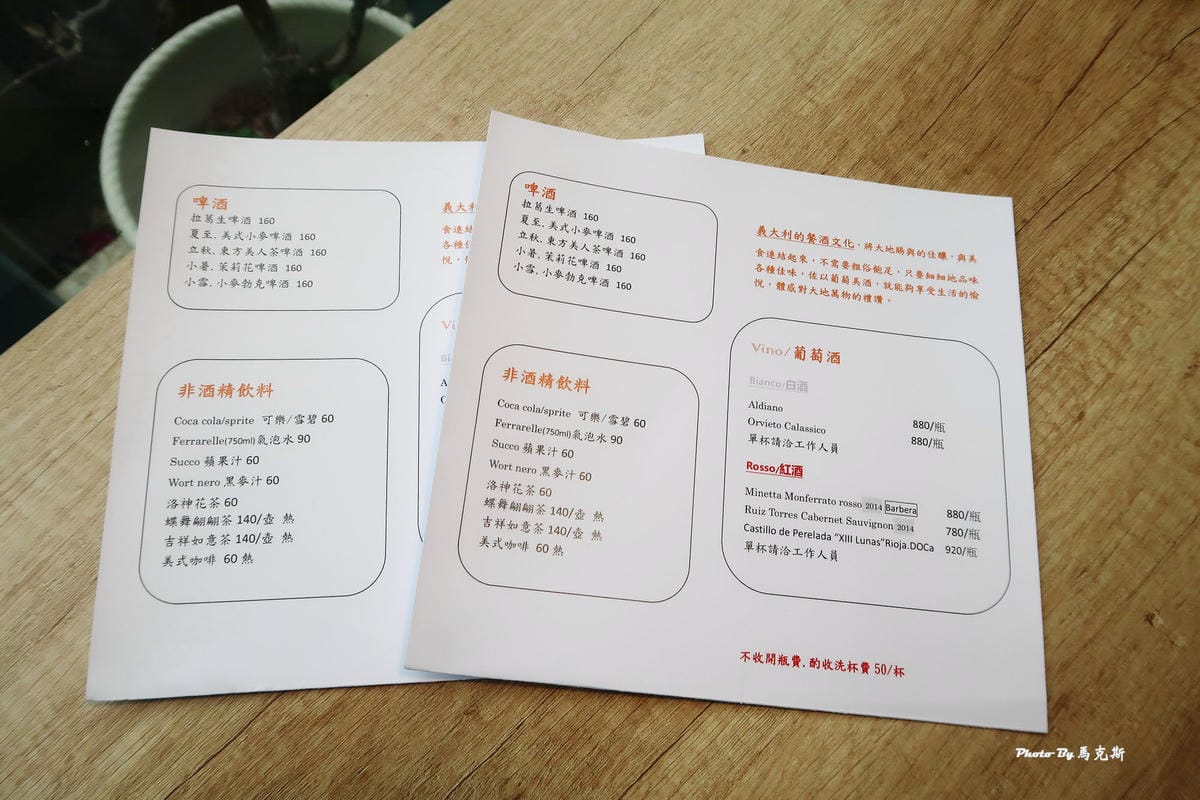 啤酒
拉葛生啤酒 160
夏至.美式小麥啤酒 160
立秋.東方美人茶啤酒 160
小暑.茉莉花啤酒 160
小雪.小麥勃克啤酒 160
非酒精飲料
Coca cola/sprite 可樂/雪碧 60
Ferrarelle(750ml)氣泡水 90
Succo 蘋果汁 60
Wort nero 黑麥汁 60
洛神花茶 60
蝶舞翩翩茶 140/壺 熱
吉祥如意茶 140/壺 熱
美式咖啡 60 熱
義大利
食連結
各種佳
悅，
Vi
Bi
A
O
啤酒
拉葛生啤酒 160
夏至.美式小麥啤酒 160
立秋.東方美人茶啤酒 160
小暑.茉莉花啤酒 160
小雪.小麥勃克啤酒 160
非酒精飲料
Coca cola/sprite 可樂/雪碧 60
Ferrarelle(750ml)氣泡水 90
Succo 蘋果汁 60
Wort nero 黑麥汁 60
洛神花茶 60
蝶舞翩翩茶 140/壺 熱
吉祥如意茶 140/壺 熱
美式咖啡 60 熱
義大利的餐酒文化，將大地賜與的佳釀，與美
食連結起來，不需要粗俗飽足，只要細細地品味
各種佳味，佐以葡萄美酒，就能夠享受生活的愉
悅，體感對大地萬物的禮讚。
Vino/葡萄酒
Bianco/白酒
Aldiano 880/瓶
Orvieto Calassico 880/瓶
單杯請洽工作人員
Rosso/紅酒
Minetta Monferrato rosso 2014 Barbera 880/瓶
Ruiz Torres Cabernet Sauvignon 2014 780/瓶
Castillo de Perelada "XIII Lunas"Rioja.DOCa 920/瓶
單杯請洽工作人員
不收開瓶費.酌收洗杯費 50/杯
Photo By 馬克斯